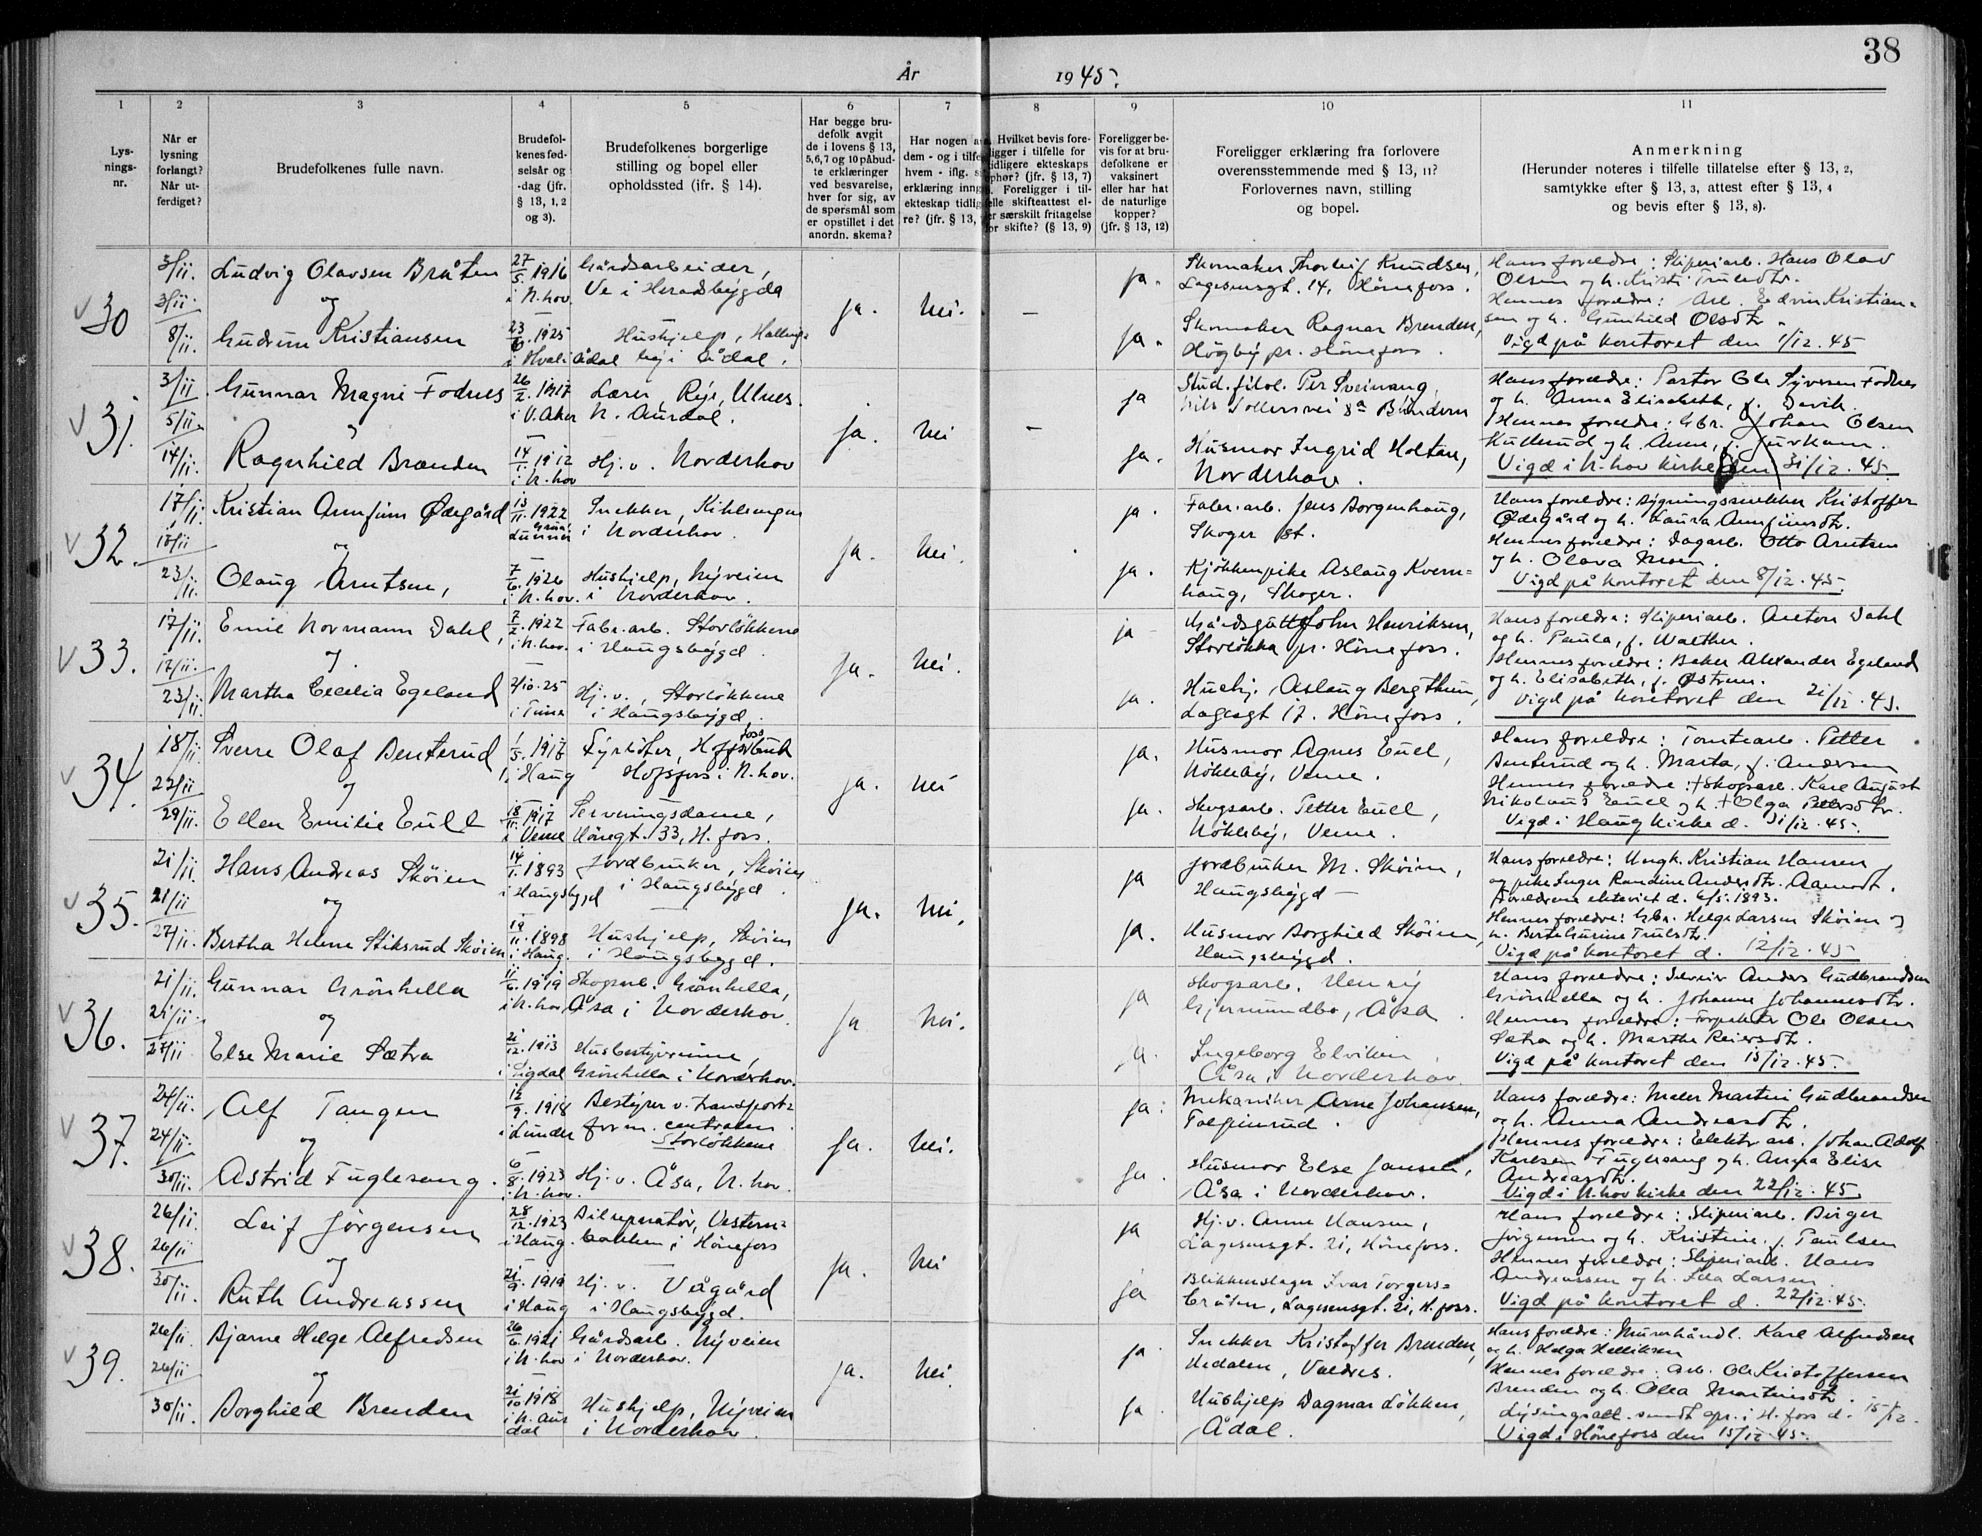 38
År 1945.
1 2 3 4 5 6 7 8 9 10 11
Lys-
nings-
nr.
Når er
lysning
forlangt?
Når ut-
ferdiget?
Brudefolkenes fulle navn.
Brudefol-
kenes fød-
selsår og
-dag (jfr.
§ 13, 1, 2
og 3).
Brudefolkenes borgerlige
stilling og bopel eller
opholdssted (ifr. § 14).
Har begge bru-
defolk avgit
de i lovens § 13,
5,6,7 og 10 påbud-
te erklæringer
ved besvarelse,
hver for sig, av
de spørsmål som
er opstillet i det
anordn. skema?
Har nogen a
dem - og i tilfe
hvem - iflg. s
erklæring inng
ekteskap tidlig
re? (jfr. § 13,
Hvilket bevis fore-
ligger i tilfelle for
tidligere ekteskaps
ophør? (jfr. § 13, 7)
Foreligger i til-
felle skifteattest el-
er særskilt fritagelse
for skifte? (§ 13, 9)
Foreligger be-
vis for at bru-
defolkene er
vaksinert
eller har hat
de naturlige
kopper?
(jfr. § 13, 12)
Foreligger erklæring fra forlovere
overensstemmende med § 13, 11?
Forlovernes navn, stilling
og bopel.
Anmerkning
(Herunder noteres i tilfelle tillatelse efter § 13, 2,
samtykke efter § 13, 3, attest efter § 13, 4
og bevis efter § 13, 8).
30
3/11.
3/11.
8/11.
Ludvig Olavsen Bråten
og
Gudrun Kristiansen
27/5 1916
i N.hov.
23/6 1925
i Hval
Gårdsarbeider,
Ve i Heradsbygda
Hushjelp,
i Ådal.
ja. nei. –
ja.
ja.
Skomaker Thorleif Knudsen,
Lagesensgt. 14, Hönefoss.
Skomaker Ragnar Brenden,
Högby pr. Hönefoss.
Hans foreldre: Sliperiarb. Hans Olav
Olsen og h. Kristi Trulsdtr.
Hennes foreldre: Arb. Edvin Kristian-
sen og h. Gunhild Olsdtr.
Vigd på kontoret den 1/12.45
31.
3/11
5/11.
14/11.
Gunnar Magne Fodnes
og
Ragnhild Brænden
26/2 1917
i V.Aker
14/1 1912
i N.hov
Lærer, Rye, Ulnes.
N. Aurdal.
Hj.v. Norderhov
ja. nei –
ja
ja.
Stud. filol. Per Sveinang,
Nils Tollersvei 8a Bindern
Husmor Ingrid Holtan,
Norderhov.
Hans foreldre: Pastor Ole Syversen Fodnes
og h. Anna Elisabeth, f. Devik.
Hennes foreldre: Gbr. Johan Olsen
og h. Anne, f.
Vigd i N.hov kirke den 31/12.45.
32.
17/11.
18/11
23/11
Kristian Arnfinn Ødegård
og
Olaug Arntsen,
13/11 1922
Lunner
7/6 1926
i N.hov.
Snekker, Kihlemoen
i Norderhov.
Hushjelp, Nyveien
i Norderhov.
ja. nei.
ja.
ja.
Fabr.arb. Jens Borgenhaug,
Skoger st.
Kjökkenpike Aslaug Kvern-
haug, Skoger.
Hans foreldre: Bygningssnekker Kristoffer
Ødegård og h. Laura Arnfinnsdtr.
Hennes foreldre: Dagarb. Otto Arntsen
og h. Olava Moen.
Vigd på kontoret den 8/12.45.
33.
17/11.
17/11.
23/11.
Emil Normann Dahl,
og
Martha Cecilia Egeland
7/2 1922
i N.hov.
2/10.25
i Tune
Fabr.arb. Storlökkene
i Haugsbygd.
Hj.v., Storlökkene
i Haugsbygd.
ja. nei.
ja
ja.
Gårdsgutt John Henriksen,
Storlökka pr. Hönefoss.
Hushj. Aslaug Bergthun,
Lagesgt 17. Hönefoss.
Hans foreldre: Sliperiarb. Anton Dahl
og h. Paula, f. Walther.
Hennes foreldre: Baker Alexander Egeland
og h. Elisabeth, f. Østrem.
Vigd på kontoret den 21/12.45.
34.
18/11.
22/11
29/11.
Sverre Olaf Benterud
og
Ellen Emilie Eull
1/5 1917
i Haug
18/11 1917
i Veme
Fyrböter, Hofsfoss bruk
Hofsfoss i N.hov.
Serveringsdame,
Hönegt. 133, H.foss.
ja. nei
ja.
ja.
Husmor Agnes Eull,
Nökleby, Veme.
Skogsarb. Petter Eull,
Nökleby, Veme.
Hans foreldre: Tomtearb. Petter
Benterud og h. Marta, f. Andersen
Hennes foreldre: + Skogsarb. Karl August
Nikolaus Eull og h. + Olga Pettersdtr.
Vigd i Haug kirke d. 31/12.45.
35.
21/11.
21/11
27/11.
Hans Andreas Sköien
og
Bertha Helene Stiksrud Sköien
14/1 1893
i Haugsbygd
19/11 1898
i Haug.
Jordbruker, Sköien
i Haugsbygd.
Hushjelp, Sköien
i Haugsbygd.
ja. nei.
ja
ja.
Jordbruker M. Sköien,
Haugsbygd –
Husmor Borghild Sköien,
Haugsbygd.
Hans foreldre: Ungk. Kristian Hansen
og pike Inger Randine Andersdtr.
Foreldrene ekteviet d. 6/5.1893.
Hennes foreldre: Gbr. Helge Larsen Sköien og
h. Berte Gurine Trulsdtr.
Vigd på kontoret d. 12/12.45
36.
21/11.
21/11.
27/11
Gunnar Grönhella
og
Else Marie Sætra
11/6 1919
i N.hov
21/12 1913
i Sigdal
Skogsarb. Grönhella,
Åsa i Norderhov.
Husbestyrerinne,
Grönhella i Norderhov.
ja nei.
ja
ja.
Skogsarb. Henry
Gjermundbo, Åsa.
Ingeborg Elviken,
Åsa i Norderhov.
Hans foreldre: Anders Gudbrandsen
Grönhella og h. Johanne Johannesdtr.
Hennes foreldre: Forpakter Ole Olsen
Sætra og h. Marthe Reiersdtr.
Vigd på kontoret den 15/12.45.
37.
24/11.
24/11.
30/11.
Alf Tangen
og
Astrid Fuglesang.
12/9 1918
i Lunder
6/8 1923
i N.hov.
Bestyrer v. transport-
form. centralen.
Storlökkene
Hj.v. Åsa, N.hov.
ja. nei.
ja.
ja.
Mekaniker Arne Johansen,
Follpinrud.
Husmor Else Jansen,
Åsa i Norderhov.
Hans foreldre: Maler Martin Gudbrandsen
og h. Anna Andreasdtr.
Hennes foreldre: Elektr. arb. Johan Adolf
Karlsen Fuglesang og h. Anna Elise
Andreasdtr.
Vigd i N.hov kirke den 22/12.45.
38.
26/11.
26/11
30/11.
Leif Jörgensen
og
Ruth Andreassen
28/12 1923
i Haug.
21/9 1919
i Haug
Bilreparatör, Vestern-
bakken i Hönefoss
Hj. v. Vågård
i Haugsbygd.
ja. nei
ja
ja
Hj.v. Anne Hansen,
Lagesensgt. 21, Hönefoss.
Blikkenslager Ivar Torgers-
bråten, Lagesensgt. 21, H.foss.
Hans foreldre: Sliperiarb. Birger
Jörgensen og h. Kristine, f. Paulsen
Hennes foreldre: Sliperiarb. Hans
Andreassen og h. Ida Larsen
Vigd på kontoret d. 22/12.45.
39.
26/11
26/11
30/11.
Bjarne Helge Alfredsen
og
Borghild Brenden
26/6 1921
i N.hov
21/10 1918
i N. Aur
dal
Gårdsarb. Nyveien
i Norderhov.
Hushjelp, Nyveien
i Norderhov.
ja. nei.
ja.
ja.
Snekker Kristoffer Brenden,
Hedalen, Valdres.
Hushjelp Dagmar Lökken,
Ådal.
Hans foreldre: Murerhåndl. Karl Alfredsen
og h. Helga Helliksen
Hennes foreldre: Arb. Ole Kristoffersen
Brenden og h. Olea Martinsdtr.
Lysingsatt. sendt spr. i H.foss d. 15/12.
Vigd i Hönefoss den 15/12.45.